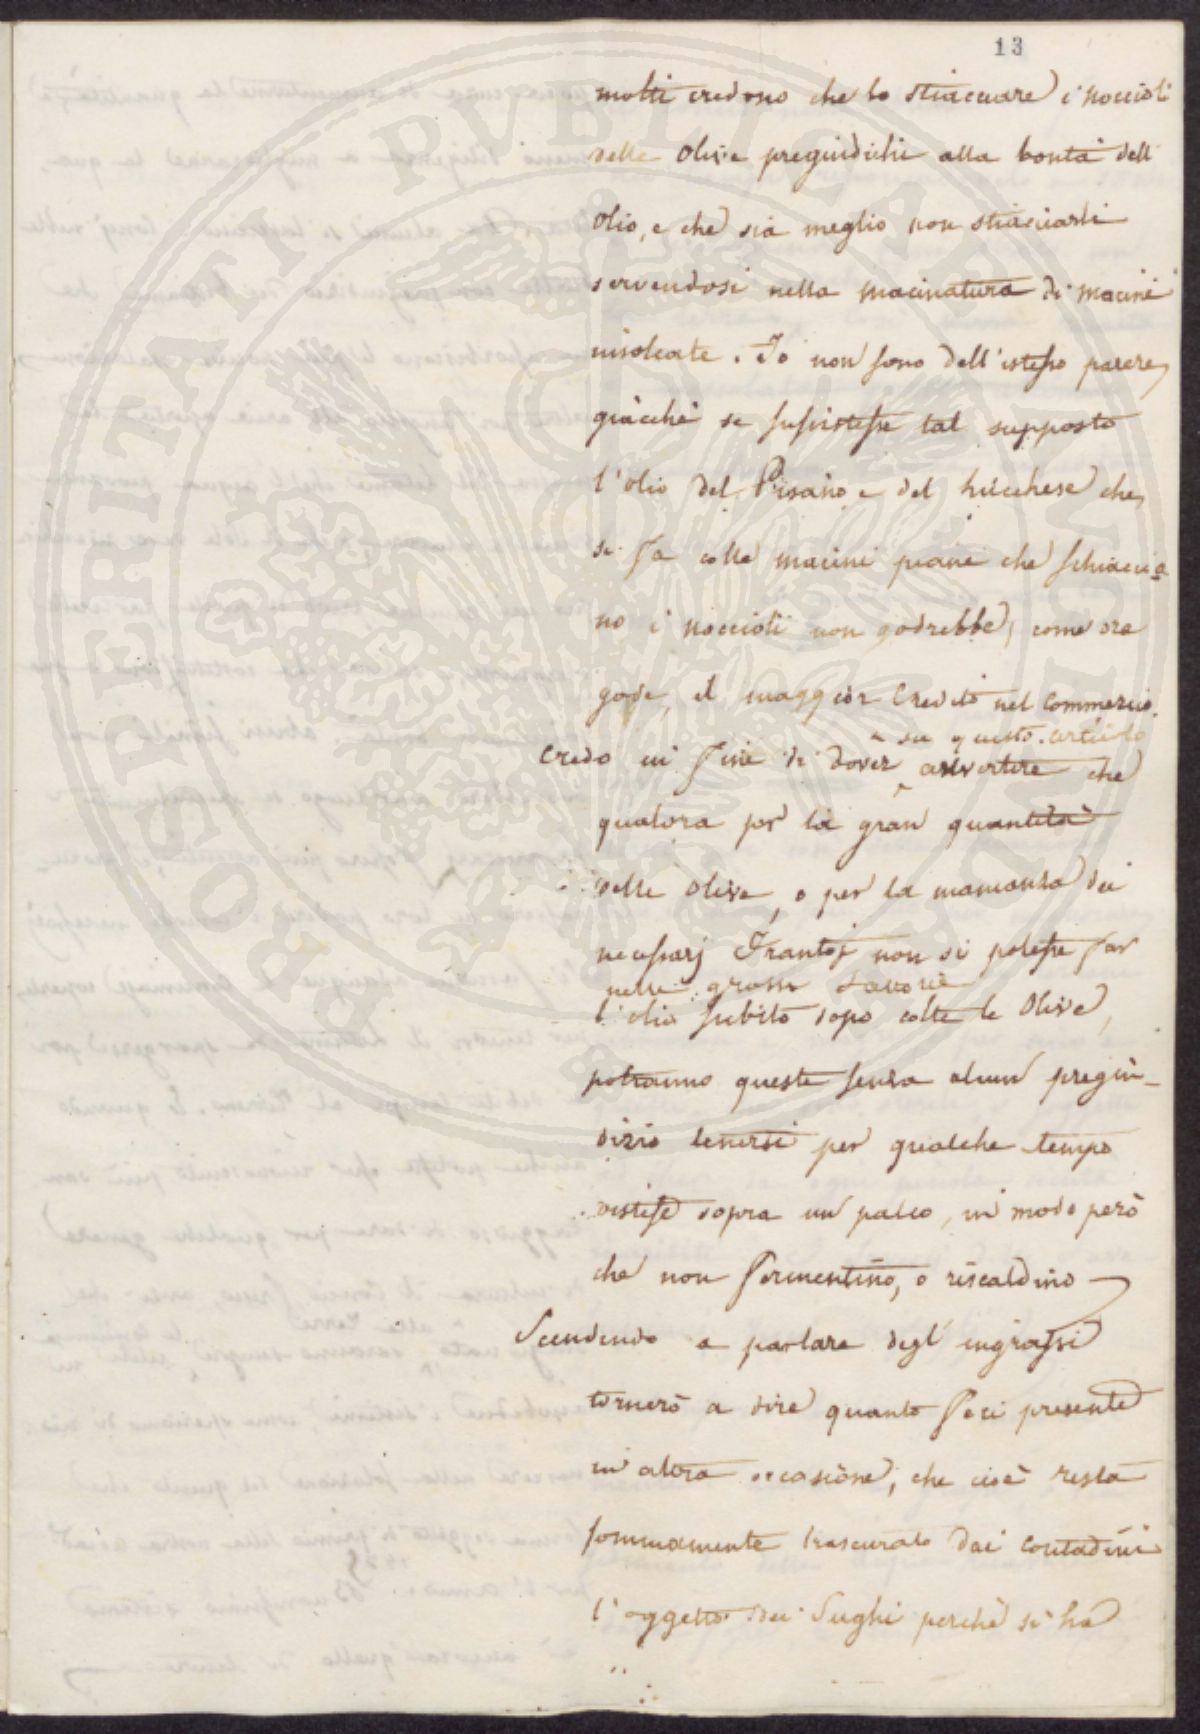 13
molti credono che lo stiacciare i noccioli
delle olive pregiudichi alla bontà dell
olio, e che sia meglio non stiacciarli
servendosi nella macinatura di macini
Io non sono dell'istesso parere,
giacchè se sussistesse tal supposto
l'olio del Pisano e del Lucchese che,
si fa colle macini piane che schiaccia
no i noccioli non godrebbe, come ora
gode, il maggior credito nel commercio.
su questo articolo
Credo in fine di dover avvertire che
qualora per la gran quantità
delle olive, o per la mancanza dei
necessarj Frantoj non si potesse far
nelle grosse Fattorie
l'olio subito dopo colte le olive,
potranno queste senza alcun pregiu-
dizio tenersi per qualche tempo
distese sopra un palco, in modo però
che non fermentino, o riscaldino
Scendendo a parlare degl'ingrassi
tornerò a dire quanto feci presente
in altra occasione, che cioè resta
sommamente trascurato dai contadini
l'oggetto dei Sughi perchè si ha
PROSPERITATI PUBLICAE AUGENDAE